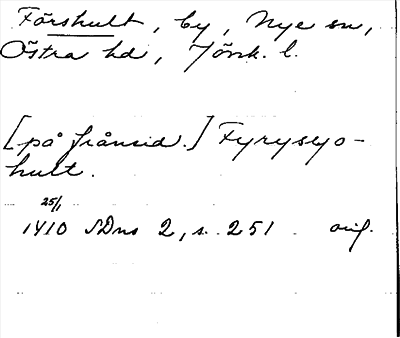 Förshult, by, Nye sn,
Östra hd, Jönk. l.
[på frånsid.] Fyrysyo-
hult.
25/1
1410 SDns 2, s. 251 orig.